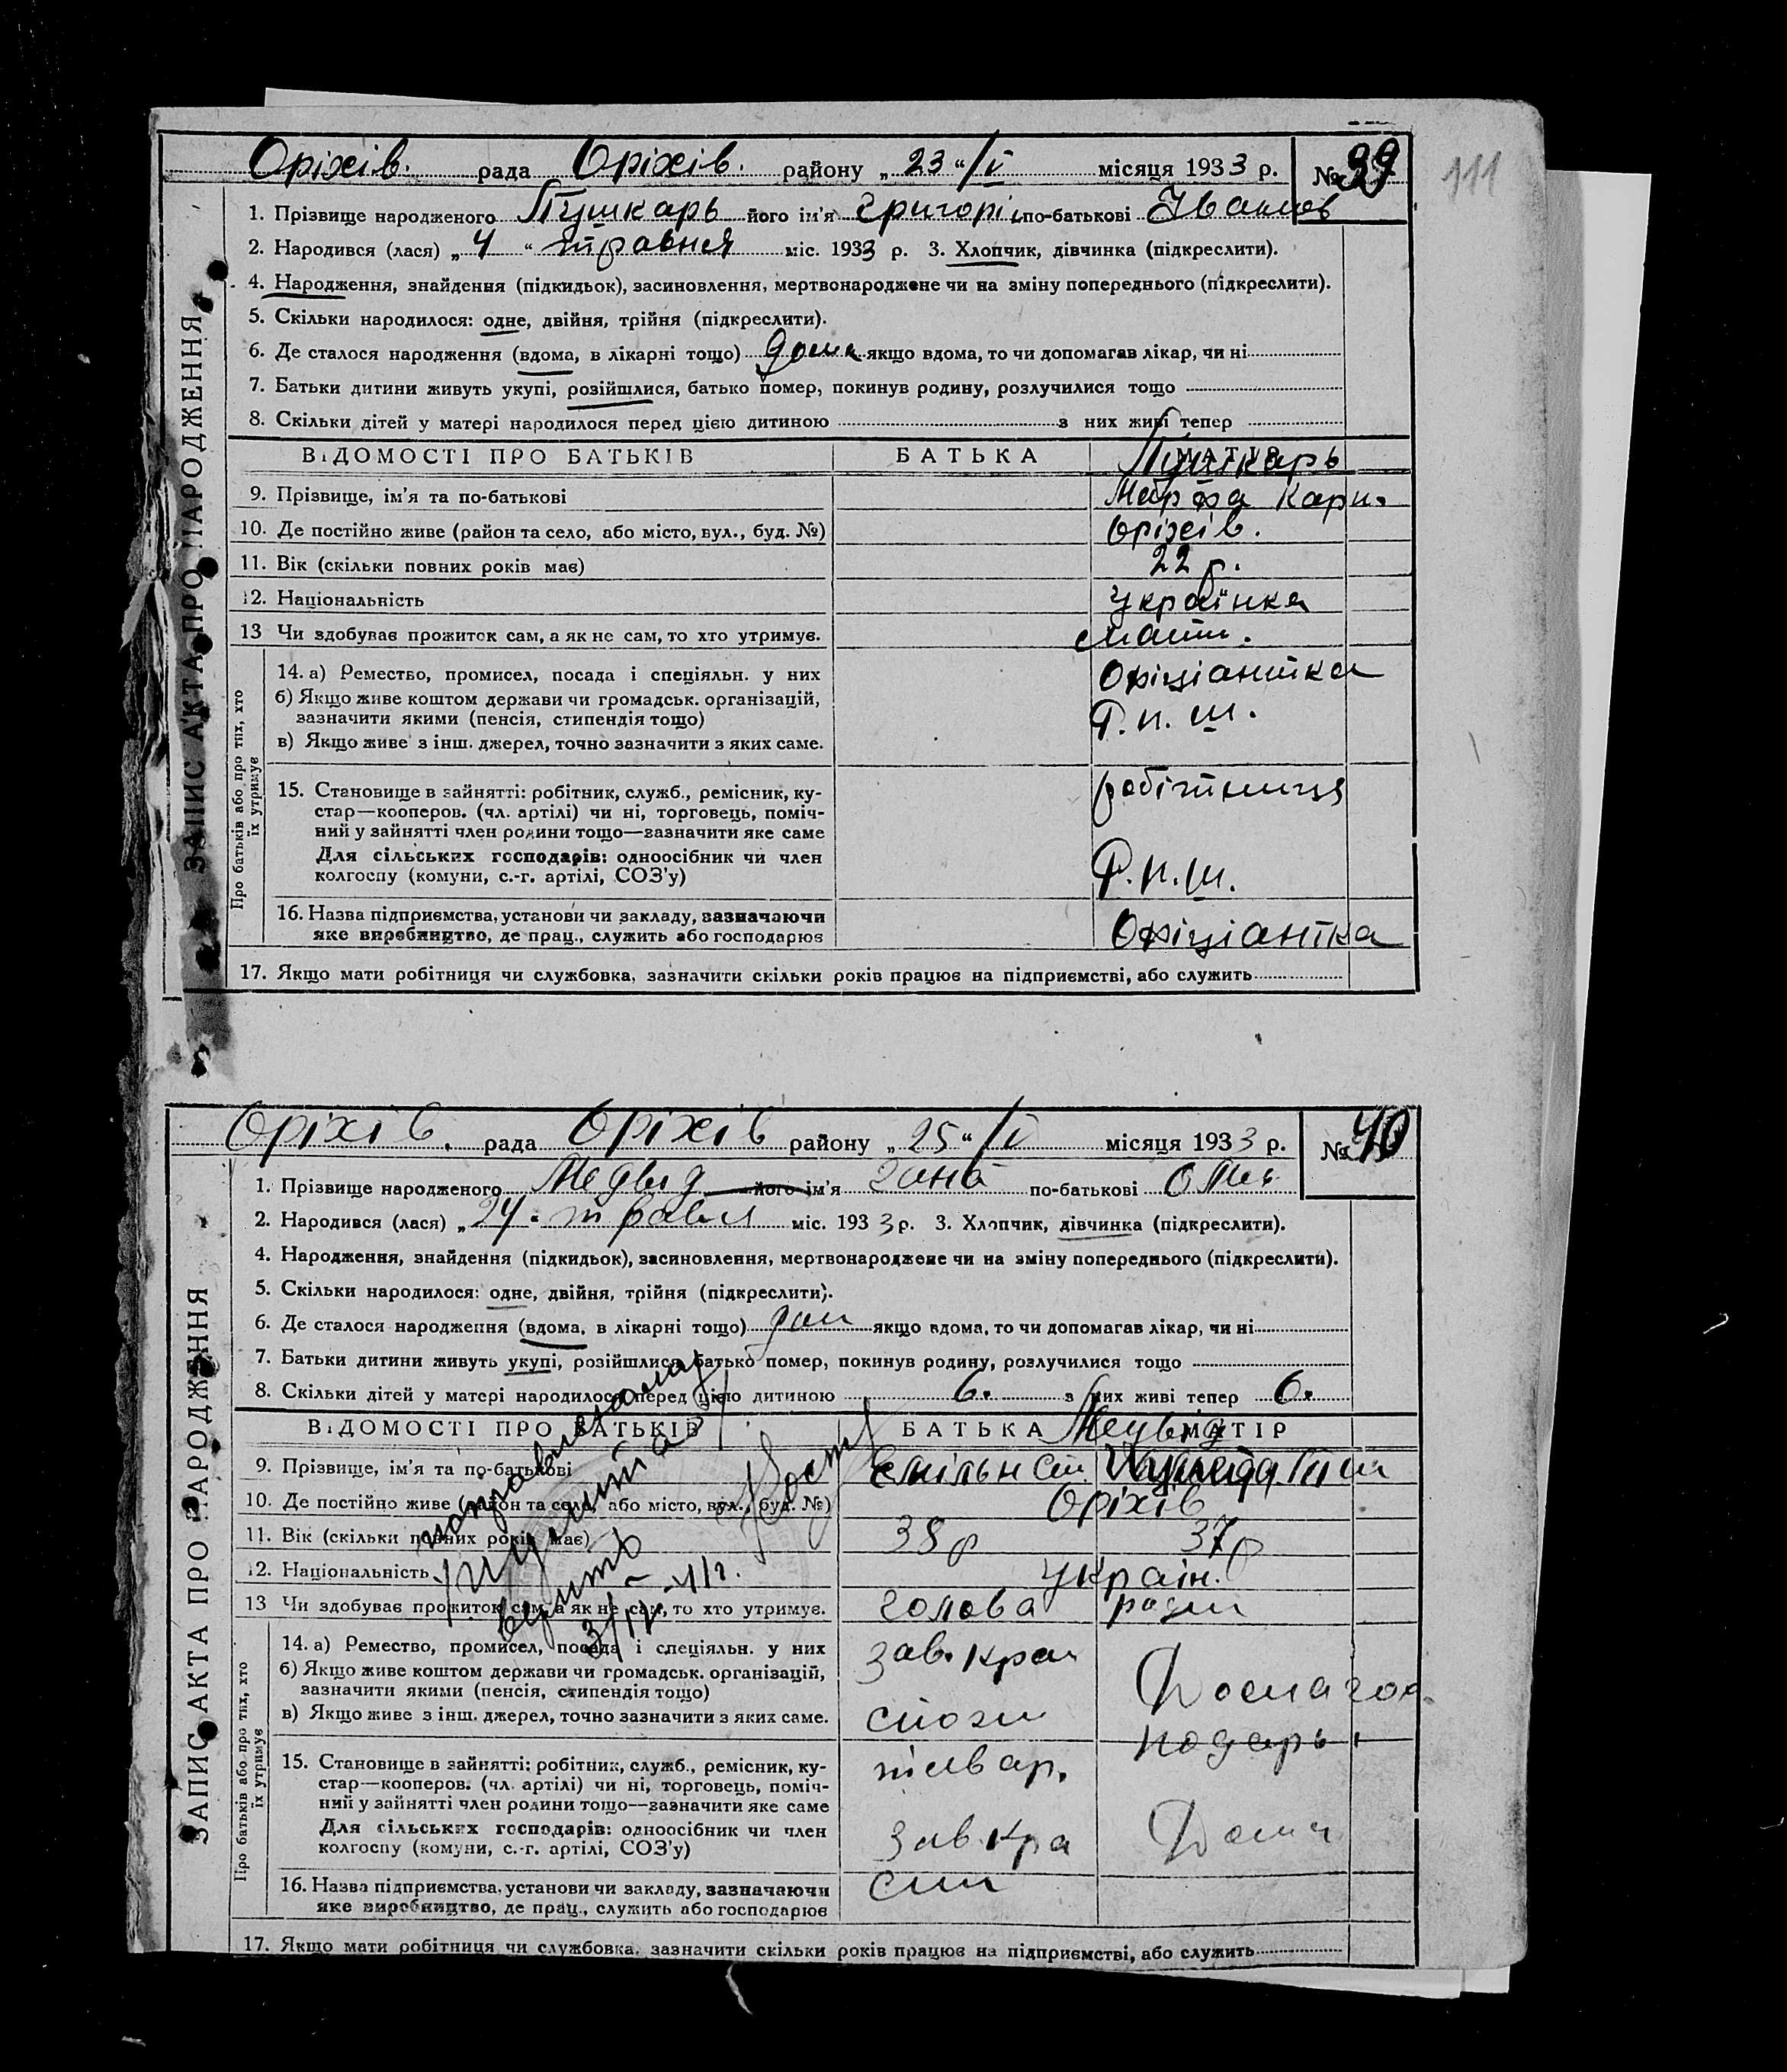 111
Оріхів. рада Оріхів. району „ 23 “ /V місяця 1933 р. № 39
ЗАПИС АКТА ПРО НАРОДЖЕННЯ
1. Прізвище народженого Пушкарь його ім'я Григорі по-батькові Іванов
2. Народився (лася) „ 4 “ травня міс. 1933 р. 3. Хлопчик, дівчинка (підкреслити).
4. Народження, знайдення (підкидьок), засиновлення, мертвонароджене чи на зміну попереднього (підкреслити).
5. Скільки народилося: одне, двійня, трійня (підкреслити).
6. Де сталося народження (вдома, в лікарні тощо) дома якщо вдома, то чи допомагав лікар, чи ні
7. Батьки дитини живуть укупі, розійшлися, батько помер, покинув родину, розлучилися тощо
8. Скільки дітей у матері народилося перед цією дитиною з них живі тепер
ВІДОМОСТІ ПРО БАТЬКІВ БАТЬКА МАТІР
Пушкарь
9. Прізвище, ім'я та по-батькові Марфа Кари.
10. Де постійно живе (район та село, або місто, вул., буд. №) Оріхів.
11. Вік (скільки повних років має) 22 р.
12. Національність Українка
13 Чи здобуває прожиток сам, а як не сам, то хто утримує. мати.
Про батьків або про тих, хто їх утримує
14. а) Ремество, промисел, посада і спеціяльн. у них Офіціантка
б) Якщо живе коштом держави чи громадськ. організацій,
зазначити якими (пенсія, стипендія тощо) Ф. п. ш.
в) Якщо живе з інш. джерел, точно зазначити з яких саме.
15. Становище в зайнятті: робітник, служб., ремісник, ку- робітниця
стар—кооперов. (чл. артілі) чи ні, торговець, поміч-
ний у зайнятті член родини тощо—зазначити яке саме
Для сільських господарів: одноосібник чи член
колгоспу (комуни, с.-г. артілі, СОЗ'у) Ф. п. ш.
16. Назва підприємства, установи чи закладу, зазначаючи
яке виробництво, де прац., служить або господарює Офіціантка
17. Якщо мати робітниця чи службовка, зазначити скільки років працює на підприємстві, або служить
Оріхів. рада Оріхів району „ 25 “ /V місяця 1933 р. № 40
ЗАПИС АКТА ПРО НАРОДЖЕННЯ
1. Прізвище народженого Медвид його ім'я по-батькові
2. Народився (лася) „ 24. травня міс. 1933 р. 3. Хлопчик, дівчинка (підкреслити).
4. Народження, знайдення (підкидьок), засиновлення, мертвонароджене чи на зміну попереднього (підкреслити).
5. Скільки народилося: одне, двійня, трійня (підкреслити).
6. Де сталося народження (вдома, в лікарні тощо) дом якщо вдома, то чи допомагав лікар, чи ні
7. Батьки дитини живуть укупі, розійшлися, батько помер, покинув родину, розлучилися тощо
8. Скільки дітей у матері народилося перед цією дитиною 6. з них живі тепер 6.
ВІДОМОСТІ ПРО БАТЬКІВ БАТЬКА МАТІР
9. Прізвище, ім'я та по-батькові
10. Де постійно живе (район та село, або місто, вул., буд. №) Оріхів
11. Вік (скільки повних років має) 38 р 37 р
12. Національність Україн.
13 Чи здобуває прожиток сам, а як не сам, то хто утримує. голова родин
верить
Про батьків або про тих, хто їх утримує
14. а) Ремество, промисел, посада і спеціяльн. у них зав. крам
б) Якщо живе коштом держави чи громадськ. організацій,
зазначити якими (пенсія, стипендія тощо) Домагос
в) Якщо живе з інш. джерел, точно зазначити з яких саме. спожи
подарь
15. Становище в зайнятті: робітник, служб., ремісник, ку- товар.
стар—кооперов. (чл. артілі) чи ні, торговець, поміч-
ний у зайнятті член родини тощо—зазначити яке саме
Для сільських господарів: одноосібник чи член
колгоспу (комуни, с.-г. артілі, СОЗ'у) Зав. кра Дома
16. Назва підприємства, установи чи закладу, зазначаючи
яке виробництво, де прац., служить або господарює
17. Якщо мати робітниця чи службовка, зазначити скільки років працює на підприємстві, або служить